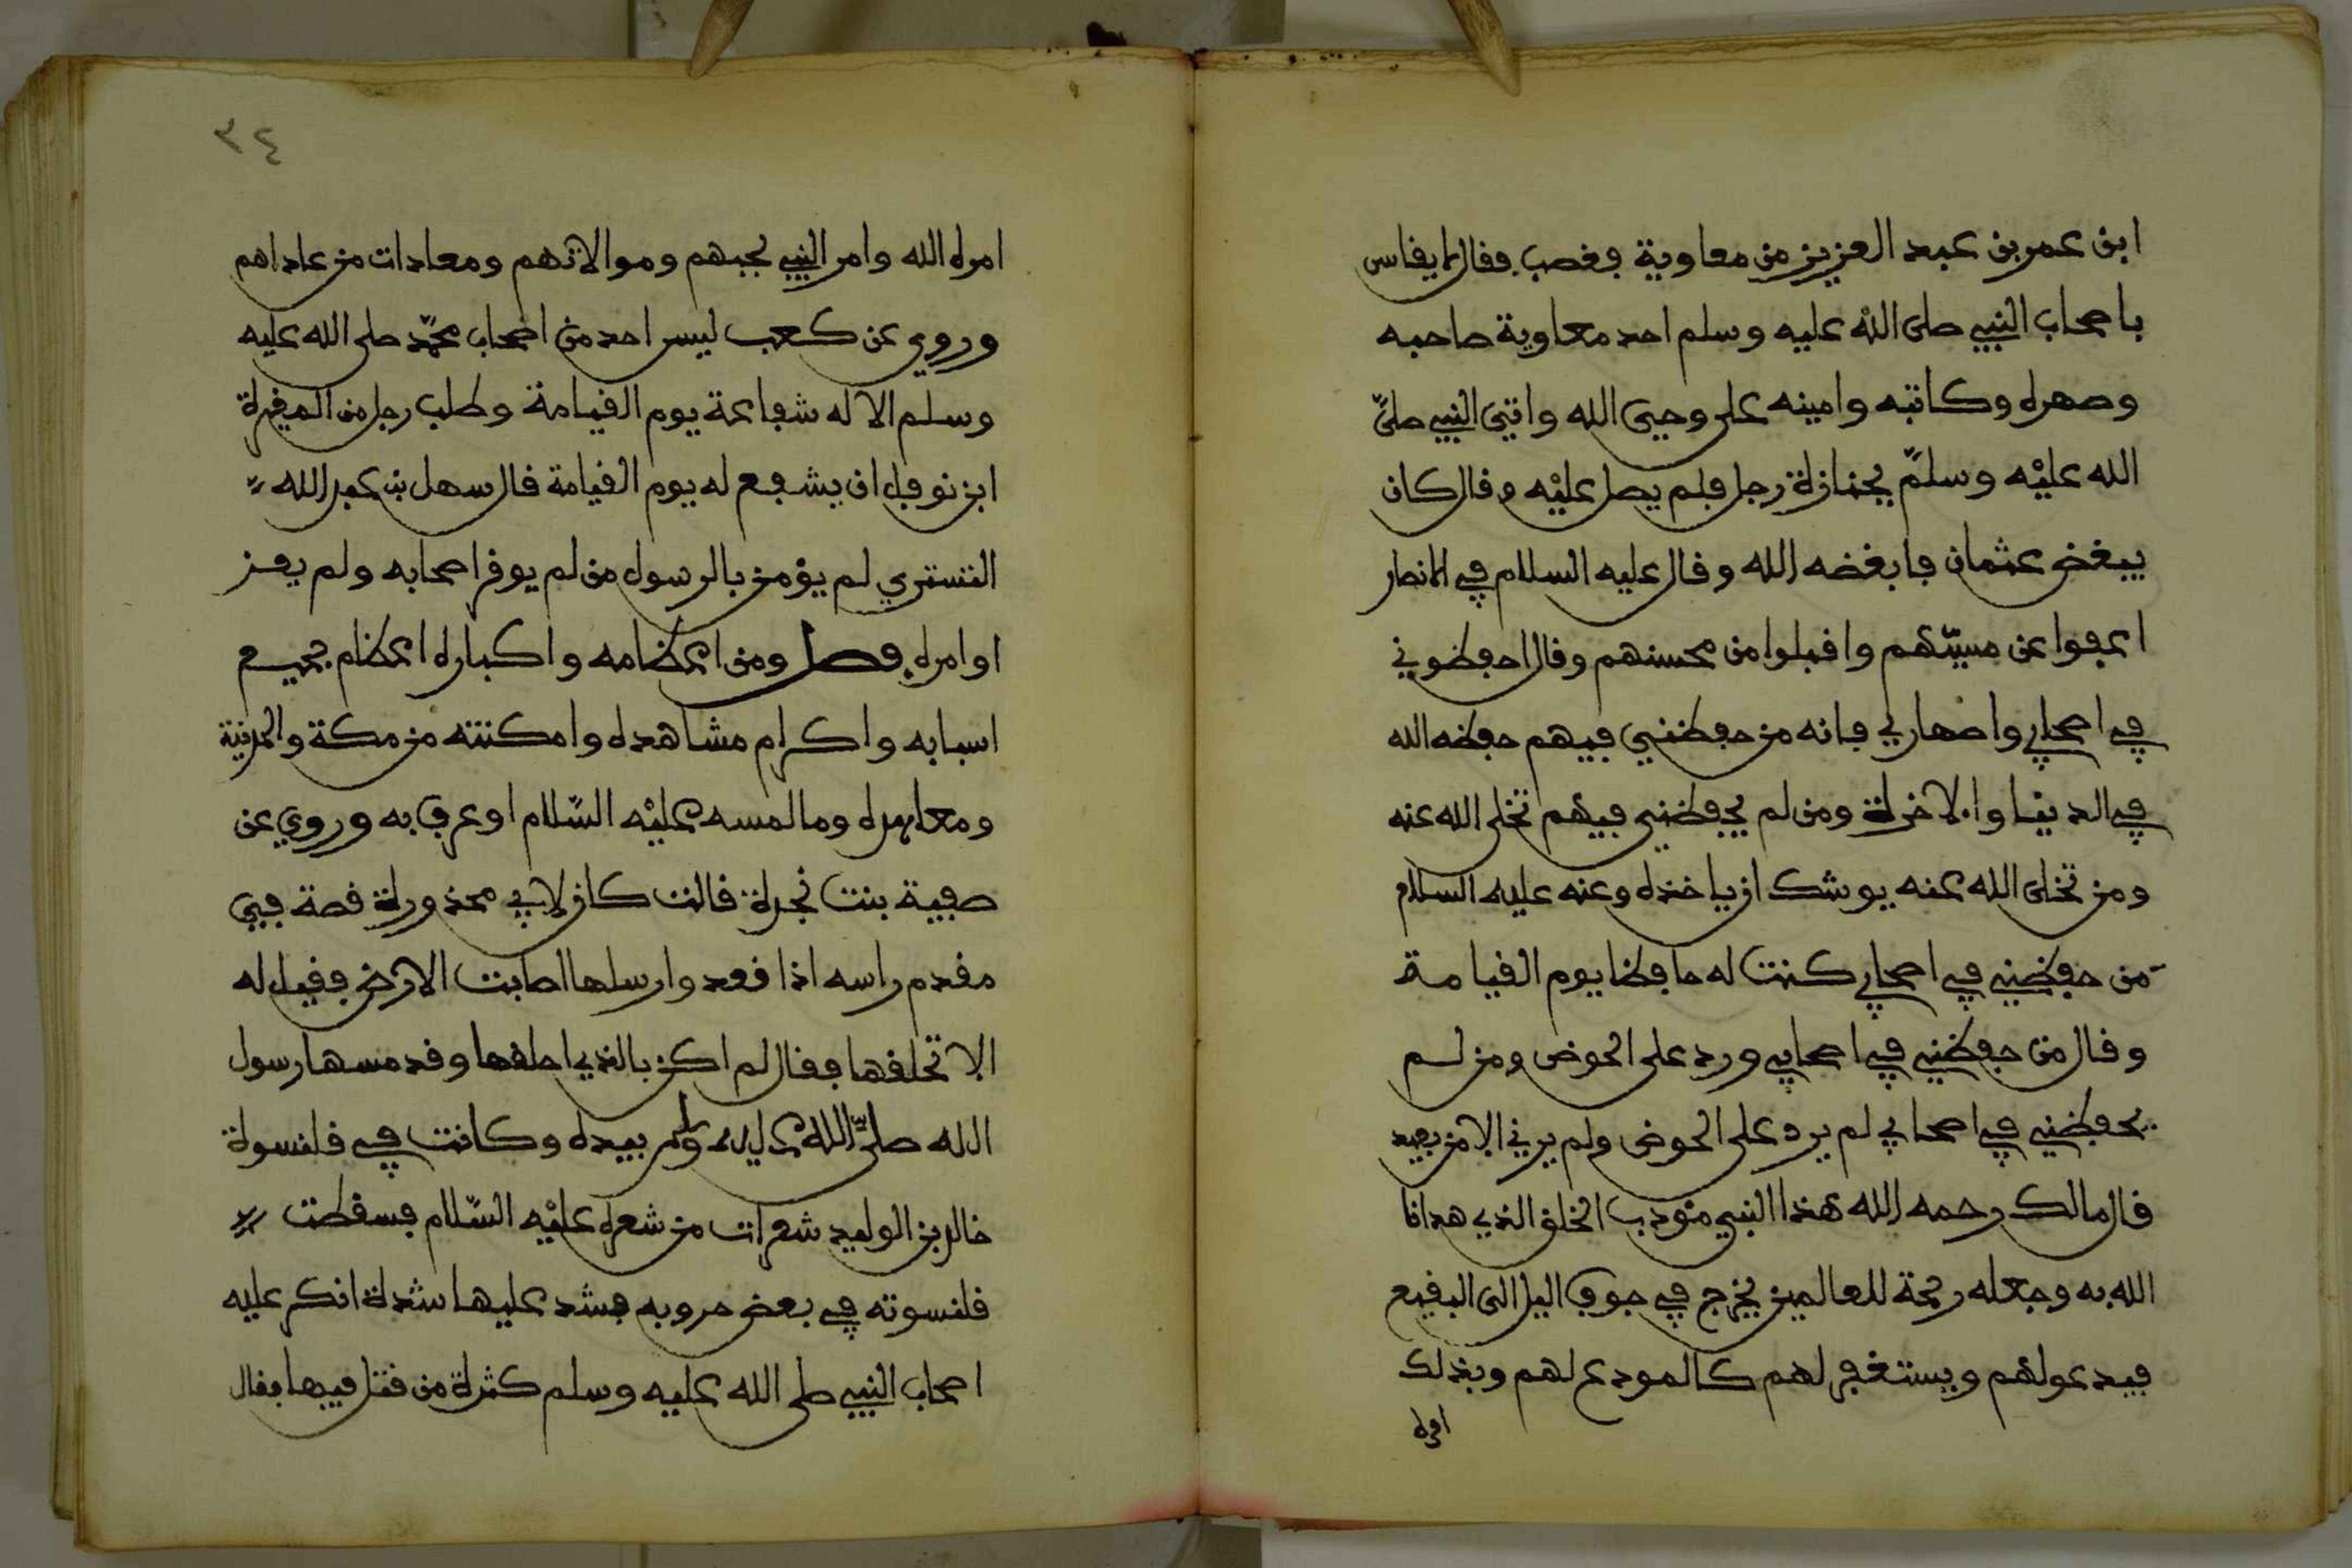 ابن عمر بن عبد العزيز من معاوية فغضب فقال لا يقاس
باصحاب النبي صلى الله عليه وسلم احد معاوية صاحبه
وصهره وكاتبه وامينه على وحي الله واتي النبي صلى
الله عليه وسلم بجنازة رجل فلم يصل عليه وقال كان
يبغض عثمان فابغضه الله وقال عليه السلام في الانصار
اعفوا عن مسيئهم واقبلوا من محسنهم وقال احفظوني
في اصحابي واصهاري فانه من حفظني فيهم حفظه الله
في الدنيا والاخرة ومن لم يحفظني فيهم تخلى الله عنه
ومن تخلى الله عنه يوشك ان ياخذه وعنه عليه السلام
من حفظني في اصحابي كنت له حافظا يوم القيامة
وقال من حفظني في اصحابي ورد على الحوض ومن لم
يحفظني في اصحابي لم يرد على الحوض ولم يرني الا من بعيد
قال مالك رحمه الله هذا النبي مودب الخلق الذي هدانا
الله به وجعله رحمة للعالمين يخرج في جوف اليل الى البقيع
فيدعو لهم ويستغفر لهم كالمودع لهم وبذلك
امره
٣٤
امره الله وامر النبي بحبهم وموالاتهم ومعادات من عاداهم
وروي عن كعب ليس احد من اصحاب محمد صلى الله عليه
وسلم الا له شفاعة يوم القيامة وطلب رجل من المغيرة
ابن نوفل ان يشفع له يوم القيامة قال سهل بن عبد الله
التستري لم يؤمن بالرسول من لم يوقر اصحابه ولم يعز
اوامره فصل ومن اعظامه واكباره اعظام جميع
اسبابه واكرام مشاهده وامكنته من مكة والمدينة
ومعاهده وما لمسه عليه السلام او عرف به وروي عن
صفية بنت نجدة قالت كان لابي محذورة قصة في
مقدم راسه اذا قعد وارسلها اصابت الارض فقيل له
الا تحلقها فقال لم اكن بالذي احلقها وقد مسها رسول
الله صلى الله عليه وسلم بيده وكانت في قلنسوة
خالد بن الوليد شعرات من شعره عليه السلام فسقطت
قلنسوته في بعض حروبه فشد عليها شدة انكر عليه
اصحاب النبي صلى الله عليه وسلم كثرة من قتل فيها فقال